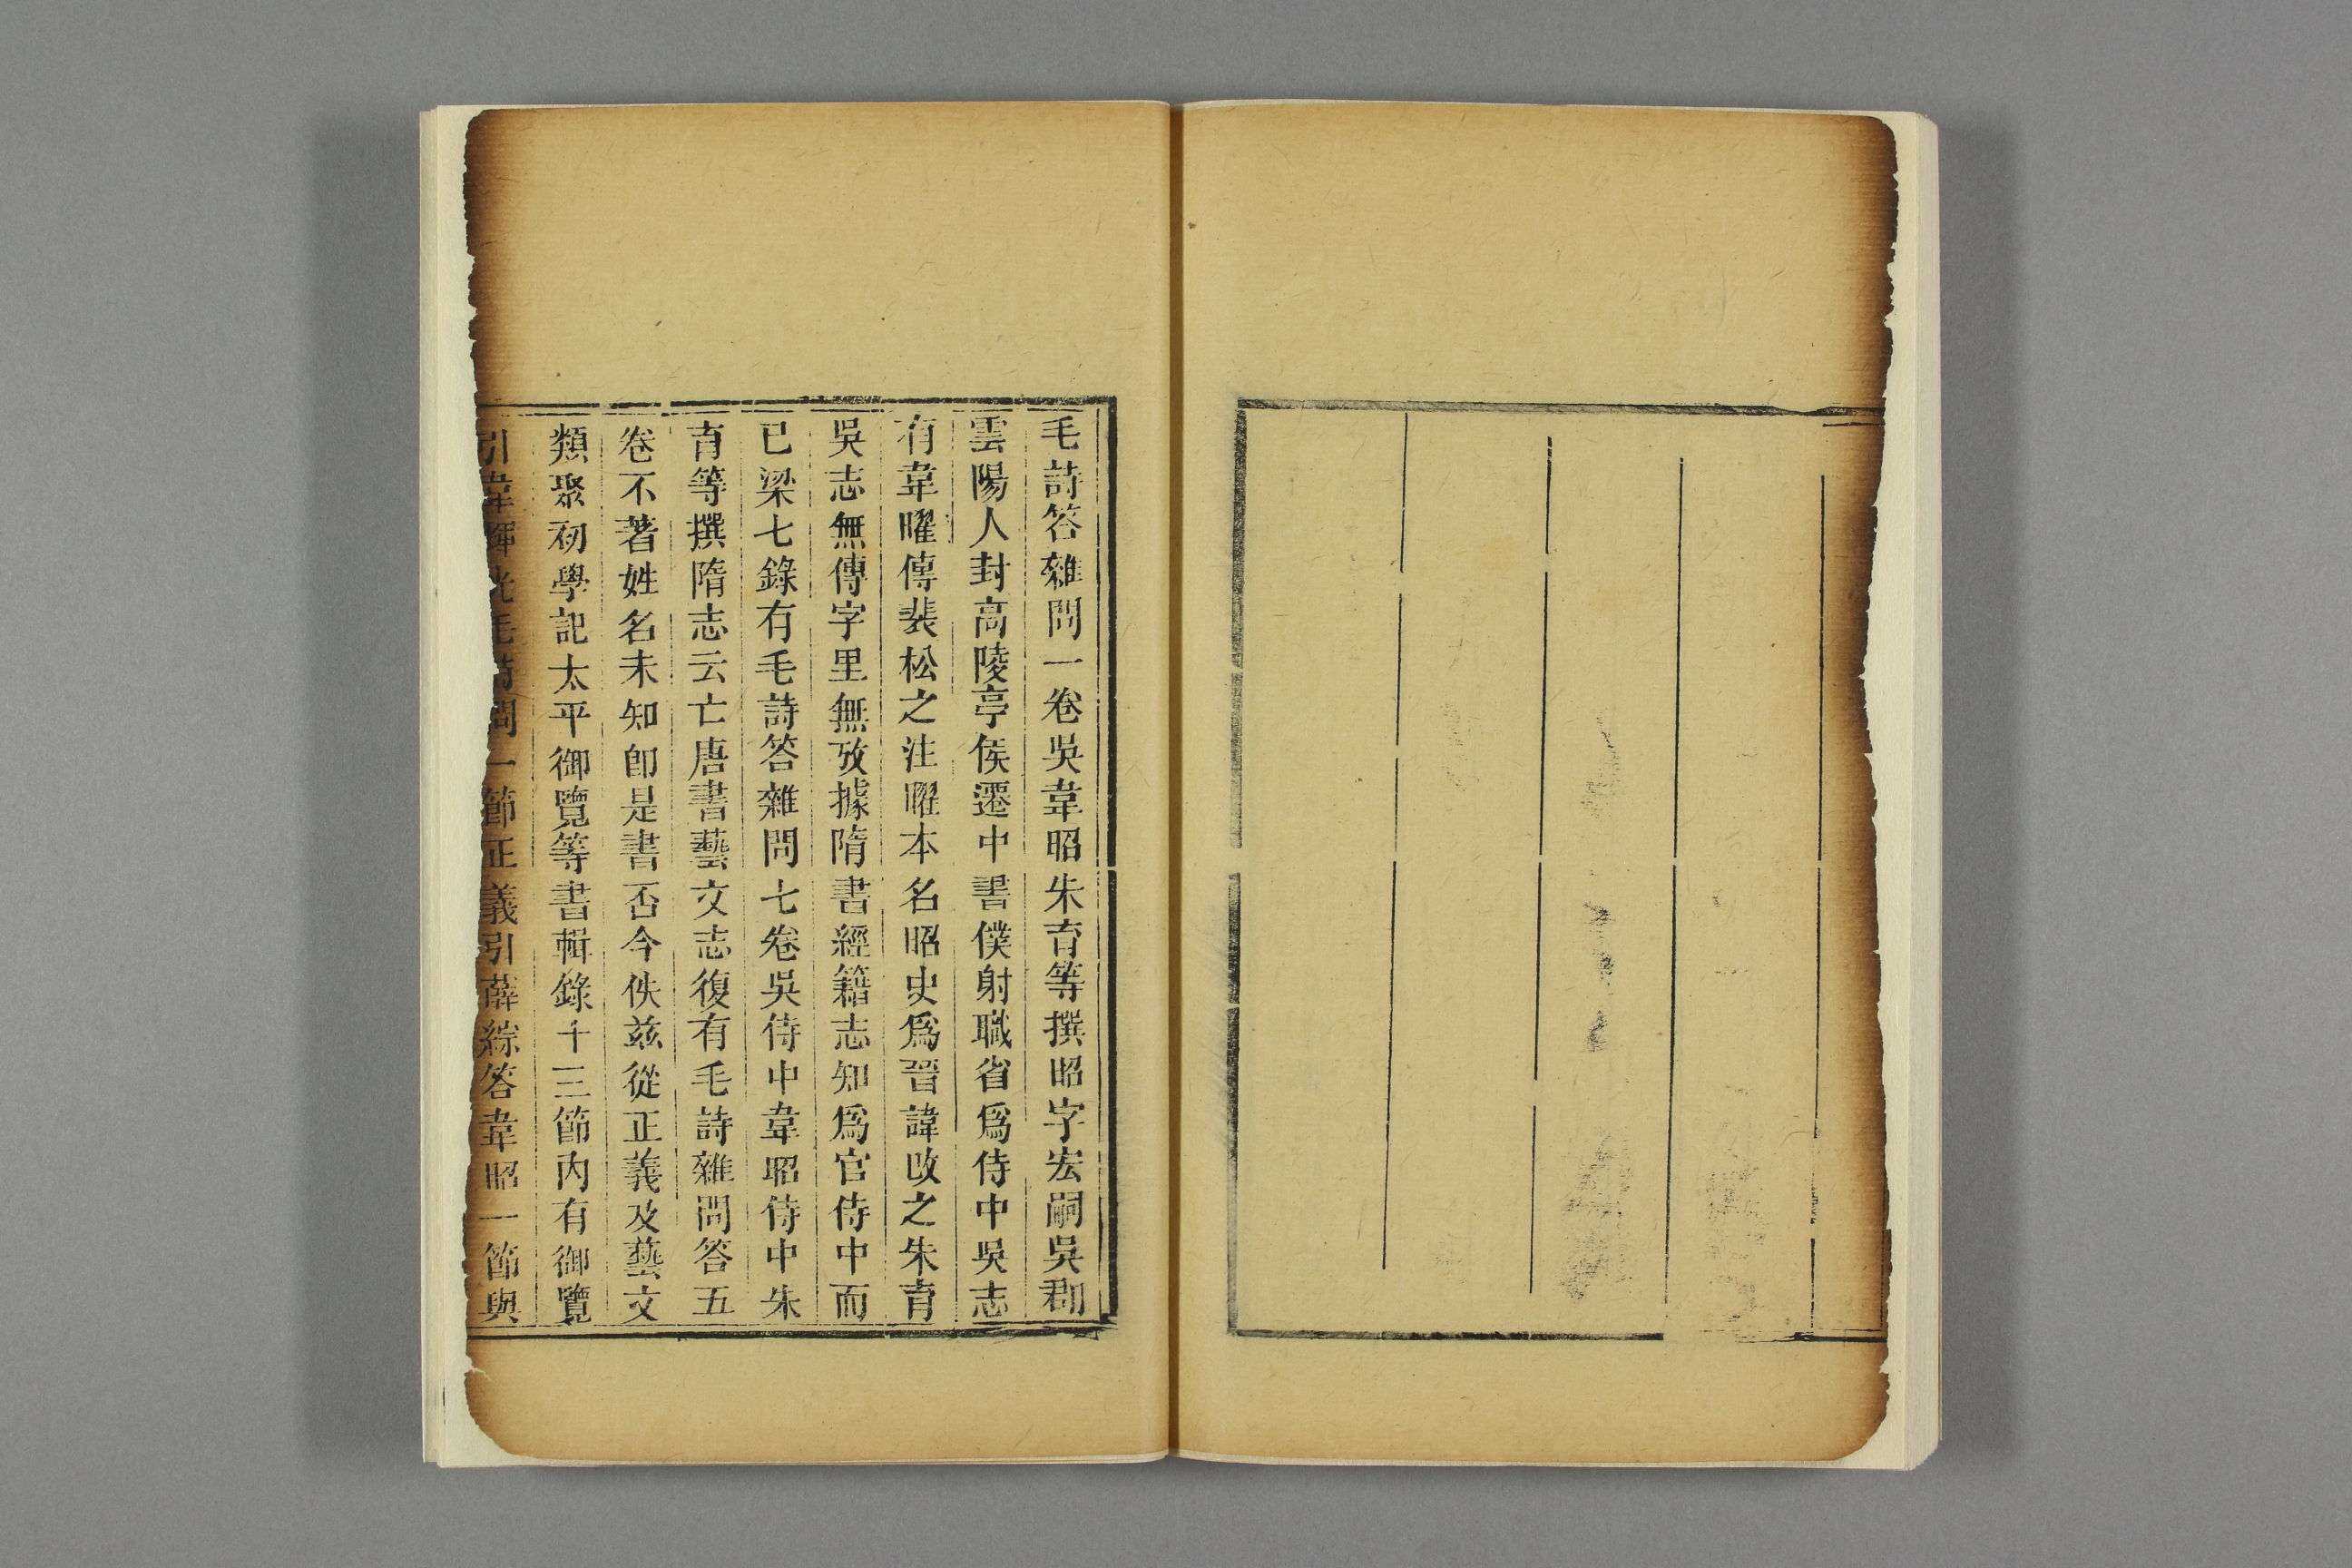 毛詩答雜問一卷吳韋昭朱育等撰昭字宏嗣吳郡
雲陽人封高陵亭侯遷中書僕射職省爲侍中吳志
有韋曜傳裴松之注曜本名昭史爲晉諱改之朱育
吳志無傳字里無攷據隋書經籍志知爲官侍中而
已梁七錄有毛詩答雜問七卷吳侍中韋昭侍中朱
育等撰隋志云亡唐書藝文志復有毛詩雜問答五
卷不著姓名未知卽是書否今佚兹從正義及藝文
類聚初學記太平御覽等書輯錄十三節內有御覽
引韋問一節正義引薛綜答韋昭一節與